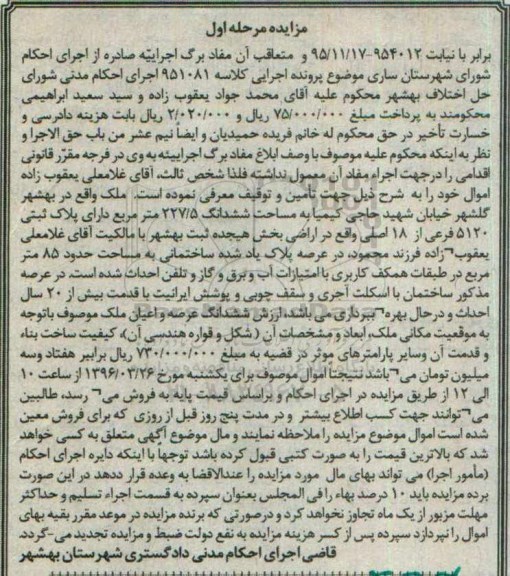 مزایده مرحله اول
برابر با نیابت ۹۵۴۰۱۲-۹۵/۱۱/۱۷ و متعاقب آن مفاد برگ اجراییّه صادره از اجرای احکام
شورای شهرستان ساری موضوع پرونده اجرایی کلاسه ۹۵۱۰۸۱ اجرای احکام مدنی شورای
حل اختلاف بهشهر محکوم علیه آقای محمد جواد یعقوب زاده و سید سعید ابراهیمی
محکومند به پرداخت مبلغ ۷۵/۰۰۰/۰۰۰ ریال و ۲/۰۲۰/۰۰۰ ریال بابت هزینه دادرسی و
خسارت تأخیر در حق محکوم له خانم فریده حمیدیان و ایضاً نیم عشر من باب حق الاجرا و
نظر به اینکه محکوم علیه موصوف با وصف ابلاغ مفاد برگ اجراییه به وی در فرجه مقرّر قانونی
اقدامی را درجهت اجراء مفاد آن معمول نداشته فلذا شخص ثالث، آقای غلامعلی یعقوب زاده
اموال خود را به شرح ذیل جهت تأمین و توقیف معرفی نموده است. ملک واقع در بهشهر
گلشهر خیابان شهید حاجی کیمیا به مساحت ششدانگ ۲۲۷/۵ متر مربع دارای پلاک ثبتی
۵۱۲۰ فرعی از ۱۸ اصلی واقع در اراضی بخش هیجده ثبت بهشهر با مالکیت آقای غلامعلی
یعقوب زاده فرزند محمود، در عرصه پلاک یاد شده ساختمانی به مساحت حدود ۸۵ متر
مربع در طبقات همکف کاربری با امتیازات آب و برق و گاز و تلفن احداث شده است. در عرصه
مذکور ساختمان با اسکلت آجری و سقف چوبی و پوشش ایرانیت با قدمت بیش از ۲۰ سال
احداث و درحال بهره برداری می باشد، ارزش ششدانگ عرصه و اعیان ملک موصوف باتوجه
به موقعیت مکانی ملک، ابعاد و مشخصات آن (شکل و قواره هندسی آن)، کیفیت ساخت بنا،
و قدمت آن وسایر پارامترهای موثر در قضیه به مبلغ ۷۳۰/۰۰۰/۰۰۰ ریال برابر هفتاد وسه
میلیون تومان می باشد نتیجتاً اموال موصوف برای یکشنبه مورخ ۱۳۹۶/۰۳/۲۶ از ساعت ۱۰
الی ۱۲ از طریق مزایده در اجرای احکام و براساس قیمت پایه به فروش می رسد، طالبین
می توانند جهت کسب اطلاع بیشتر و در مدت پنج روز قبل از روزی که برای فروش معین
شده است اموال موضوع مزایده را ملاحظه نمایند و مال موضوع آگهی متعلق به کسی خواهد
شد که بالاترین قیمت را به صورت کتبی قبول کرده باشد توجها با اینکه دایره اجرای احکام
(مأمور اجرا) می تواند بهای مال مورد مزایده را عندالاقضا به وعده قرار ددهد در این صورت
برده مزایده باید ۱۰ درصد بهاء را فی المجلس بعنوان سپرده به قسمت اجراء تسلیم و حداکثر
مهلت مزبور از یک ماه تجاوز نخواهد کرد و درصورتی که برنده مزایده در موعد مقرر بقیه بهای
اموال را نپردازد سپرده پس از کسر هزینه مزایده به نفع دولت ضبط و مزایده تجدید می-گردد.
قاضی اجرای احکام مدنی دادگستری شهرستان بهشهر